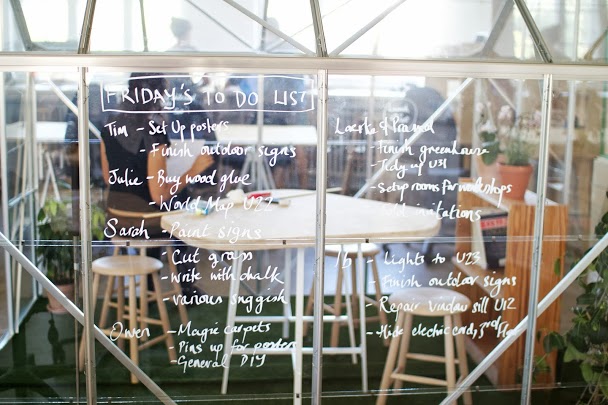 FRIDAY'S TO DO LIST
Tim - Set Up posters
- Finish outdoor signs
Julie - Buy wood glue
- World Map U22
Sarah - Paint signs
- Cut grass
- Write with chalk
- various
Owen - Magic carpets
- Pins up for posters
- General DIY
&
- Finish greenhouse
- Tidy up U31
- Setup rooms for workshops
- invitations
Ib - Lights to U23
- Finish outdoor signs
- Repair window sill U12
- Hide electric cord, 3rd